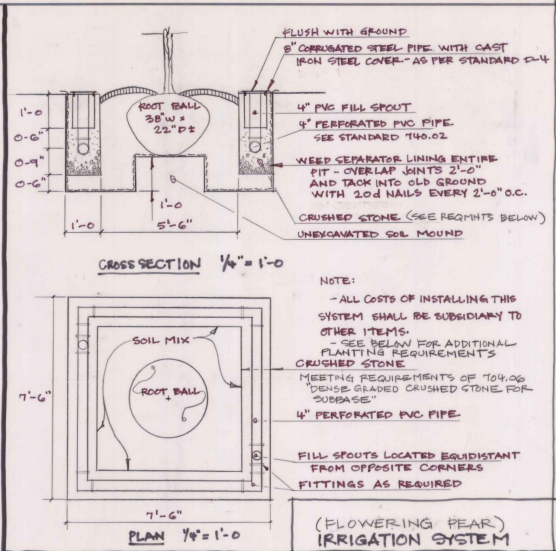 FLUSH WITH GROUND
8" CORRUGATED STEEL PIPE WITH CAST
IRON STEEL COVER - AS PER STANDARD D-4
4" PVC FILL SPOUT
4" PERFORATED PVC PIPE
SEE STANDARD 740.02
WEED SEPARATOR LINING ENTIRE
PIT - OVERLAP JOINTS 2'-0"
AND TACK INTO OLD GROUND
WITH 20d NAILS EVERY 2'-0" O.C.
CRUSHED STONE (SEE REQMNTS BELOW)
UNEXCAVATED SOIL MOUND
ROOT BALL
38"W x
22"D±
1'-0
0-6"
0-9"
0-6"
1'-0
1'-0
5'-6"
CROSS SECTION 1/4" = 1'-0
NOTE:
- ALL COSTS OF INSTALLING THIS
SYSTEM SHALL BE SUBSIDIARY TO
OTHER ITEMS.
- SEE BELOW FOR ADDITIONAL
PLANTING REQUIREMENTS
CRUSHED STONE
MEETING REQUIREMENTS OF 704.06
"DENSE GRADED CRUSHED STONE FOR
SUBBASE"
4" PERFORATED PVC PIPE
FILL SPOUTS LOCATED EQUIDISTANT
FROM OPPOSITE CORNERS
FITTINGS AS REQUIRED
SOIL MIX
ROOT BALL
7'-6"
7'-6"
PLAN 1/4" = 1'-0
(FLOWERING PEAR)
IRRIGATION SYSTEM